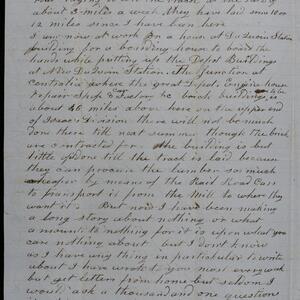 about 3 miles a week they have laid some 10 or
12 miles since I have been here
I am now at work on a house at DuQuoin Station
building for a boarding house to board the
hands while putting up the Depot Buildings
at New DuQuoin Station. The Junction at
Centralia where the great Depot, Engine house
repair Shop & Car Factory & much building is
about 45 miles above here on the upper end
of our Division there will not be much
done there till next summer though the brick
are contracted for the building is but
little of done till the track is laid because
they can procure the lumber so much
cheaper by means of the Rail Road Cars
to transport it from the Mill to where they
want it. But now I have been making
a long story about nothing or what
amounts to nothing for it is upon what you
can nothing about but I don't know
as I have any thing in particular to write
about I have wrote to you most every week
but get letters from home but seldom I
would ask a thousand and one question